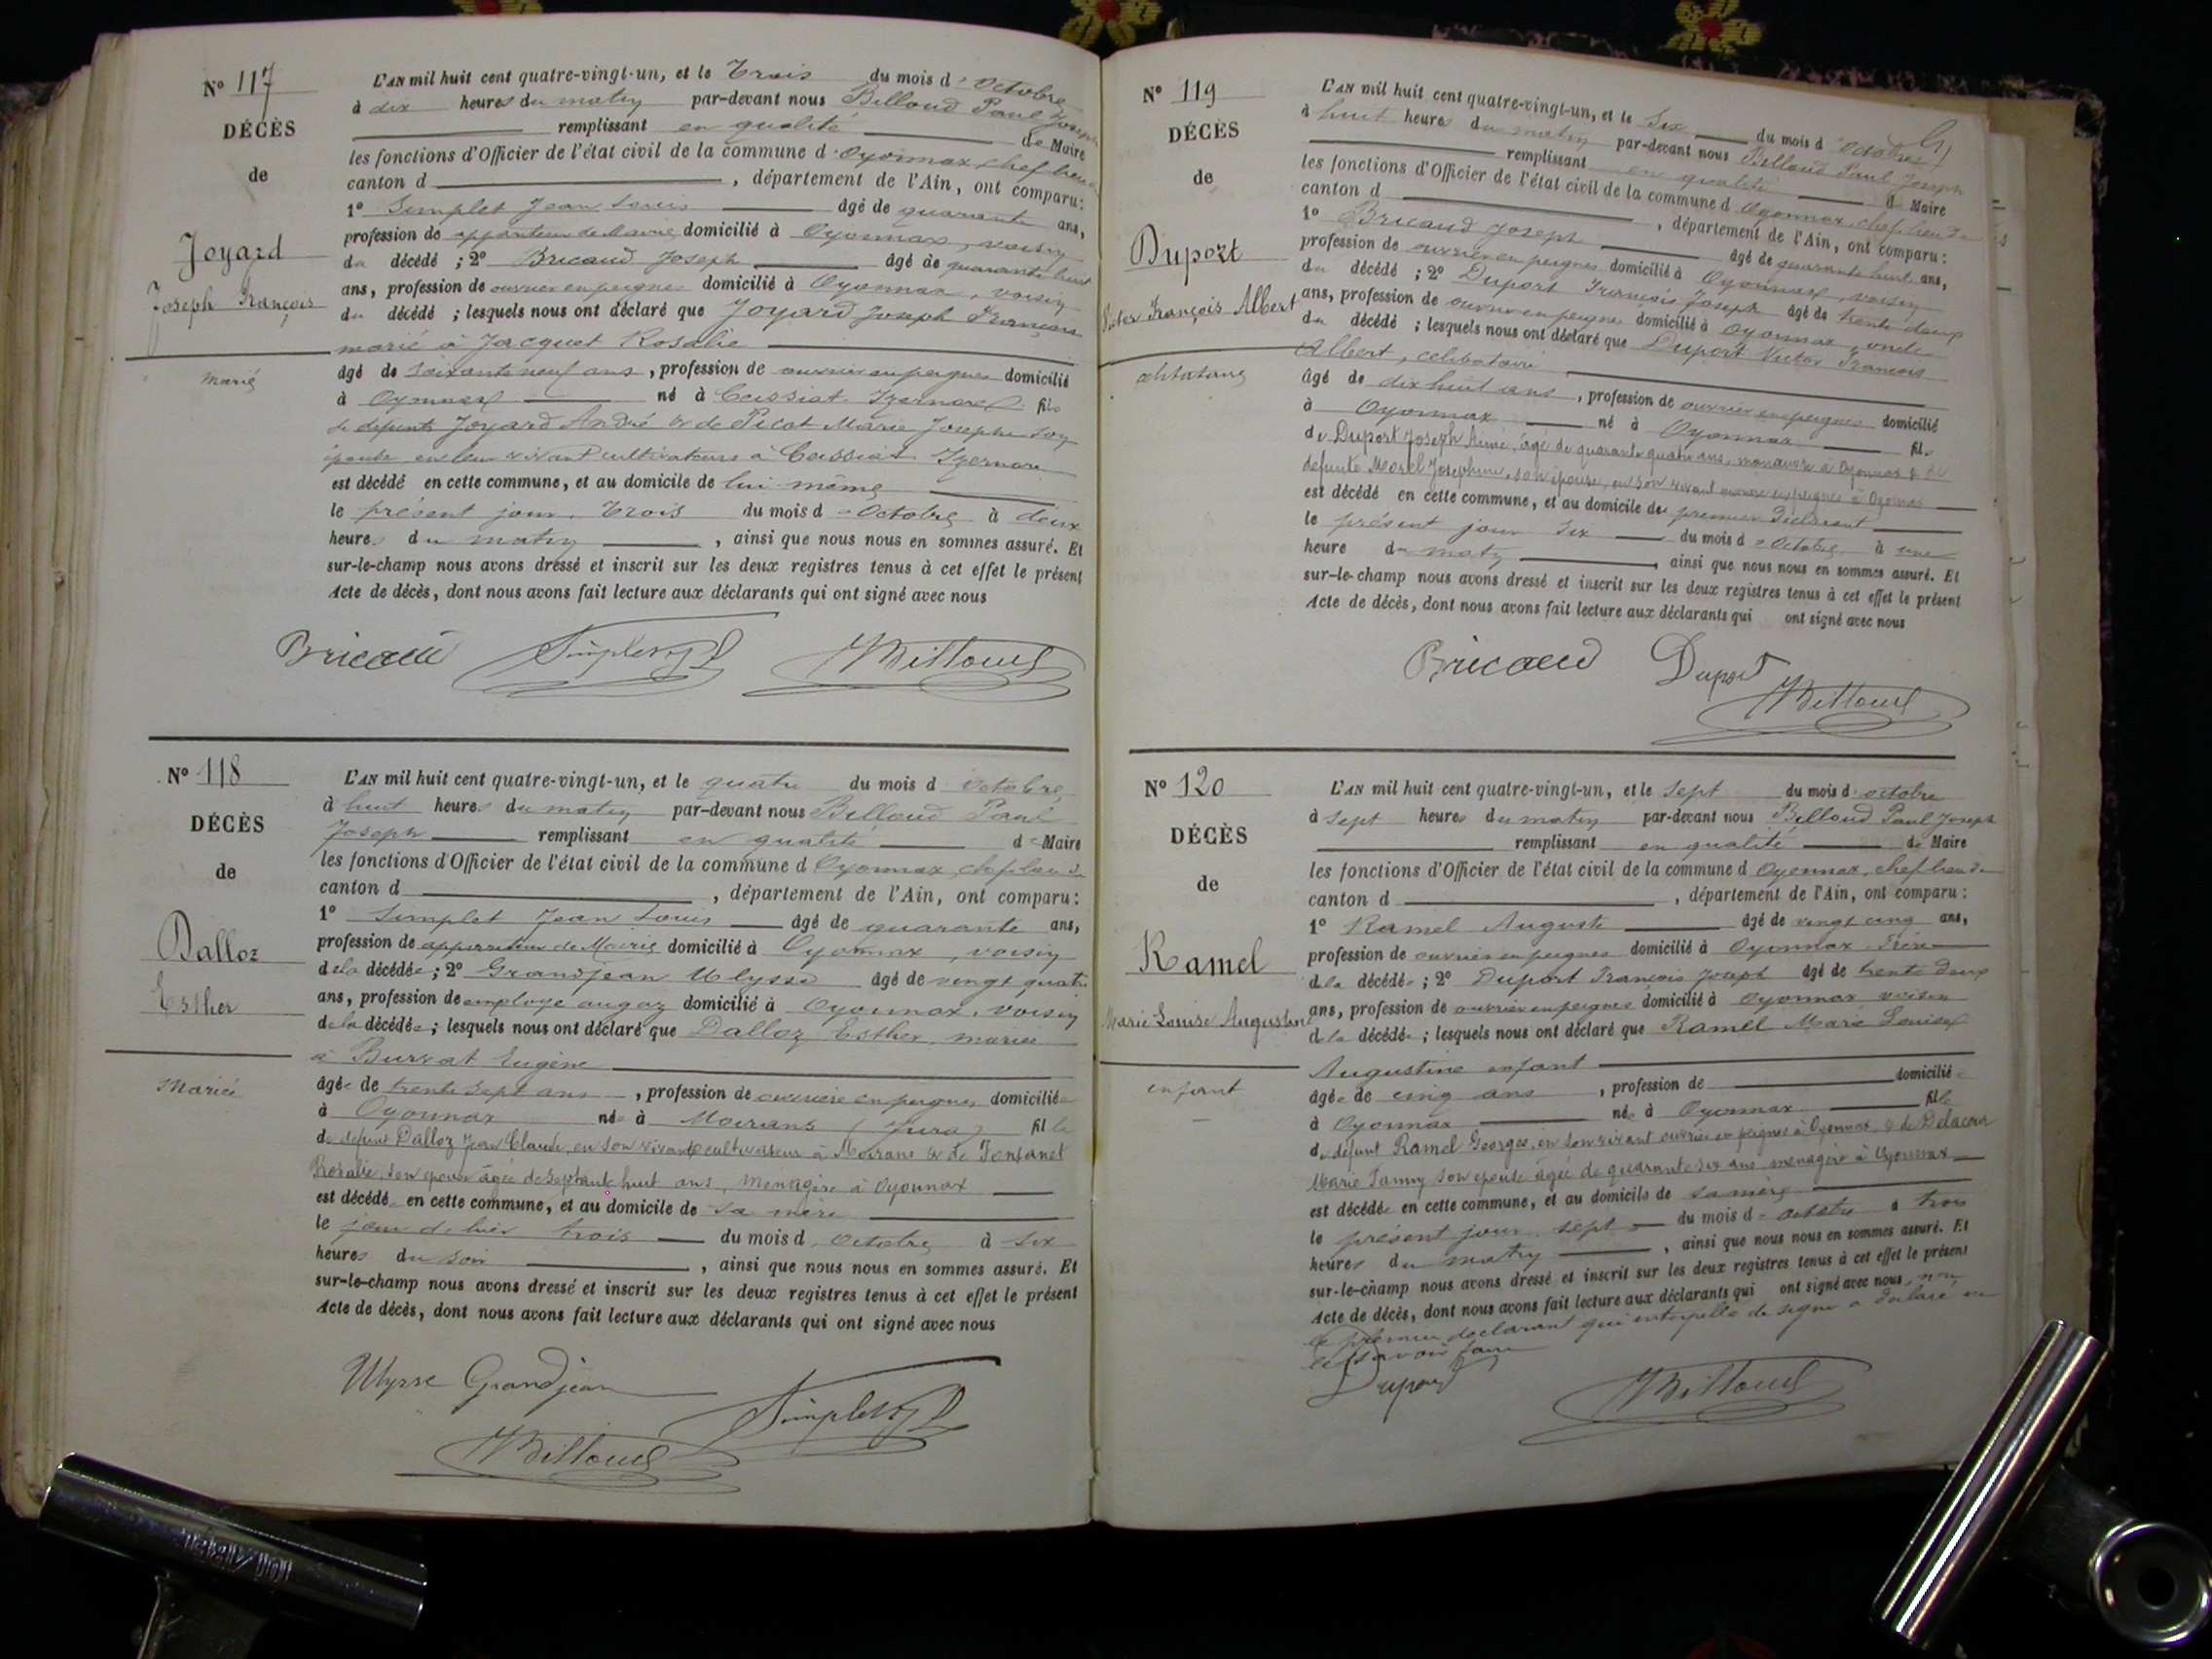 N° 117
DÉCÈS
de
Joyard
Joseph François
marié
L'AN mil huit cent quatre-vingt-un, et le Trois du mois d'Octobre
à dix heures du matin par-devant nous Billoud Paul Joseph
remplissant en qualité de Maire
les fonctions d'Officier de l'état civil de la commune d'Oyonnax, chef lieu
canton d , département de l'Ain, ont comparu:
1° Simplet Jean Louis âgé de quarante ans,
profession de appariteur de Mairie domicilié à Oyonnax, voisin
du décédé ; 2° Bricaud Joseph âgé de quarante huit
ans, profession de ouvrier en peignes domicilié à Oyonnax, voisin
du décédé ; lesquels nous ont déclaré que Joyard Joseph François
marié à Jacquet Rosalie
âgé de soixante neuf ans, profession de ouvrier en peignes domicilié
à Oyonnax né à Ceissiat Izernore fils
de defunts Joyard André & de Picot Marie Josephe son
épouse en leur vivant cultivateurs à Ceissiat Izernore
est décédé en cette commune, et au domicile de lui même
le présent jour, Trois du mois d'Octobre à deux
heures du matin , ainsi que nous nous en sommes assuré. Et
sur-le-champ nous avons dressé et inscrit sur les deux registres tenus à cet effet le présent
Acte de décès, dont nous avons fait lecture aux déclarants qui ont signé avec nous
Bricaud Simplet Billoud
N° 118
DÉCÈS
de
Dalloz
Esther
Mariée
L'AN mil huit cent quatre-vingt-un, et le quatre du mois d octobre
à huit heures du matin par-devant nous Billoud Paul
Joseph remplissant en qualité de Maire
les fonctions d'Officier de l'état civil de la commune d Oyonnax, chef lieu de
canton d , département de l'Ain, ont comparu:
1° Simplet Jean Louis âgé de quarante ans,
profession de appariteur de Mairie domicilié à Oyonnax, voisin
de la décédée ; 2° Grandjean Ulysse âgé de vingt quatre
ans, profession de employé au gaz domicilié à Oyonnax, voisin
de la décédée ; lesquels nous ont déclaré que Dalloz Esther, mariée
à Burvat Eugène
âgée de trente sept ans, profession de ouvrière en peignes domiciliée
à Oyonnax née à Moirans (Jura) fille
de defunt Dalloz Jean Claude, en son vivant cultivateur à Moirans & de Fontanet
Rosalie, son épouse âgée de septante huit ans, menagère à Oyonnax
est décédée en cette commune, et au domicile de sa mère
le jour de hier trois du mois d'octobre à six
heures du soir , ainsi que nous nous en sommes assuré. Et
sur-le-champ nous avons dressé et inscrit sur les deux registres tenus à cet effet le présent
Acte de décès, dont nous avons fait lecture aux déclarants qui ont signé avec nous
Ulysse Grandjean Simplet
Billoud
N° 119
DÉCÈS
de
Duport
Victor François Albert
célibataire
L'AN mil huit cent quatre-vingt-un, et le Six du mois d'Octobre
à huit heures du matin par-devant nous Billoud Paul Joseph
remplissant en qualité d Maire
les fonctions d'Officier de l'état civil de la commune d Oyonnax, chef lieu de
canton d , département de l'Ain, ont comparu:
1° Bricaud Joseph âgé de quarante huit ans,
profession de ouvrier en peignes domicilié à Oyonnax, voisin
du décédé ; 2° Duport François Joseph âgé de trente deux
ans, profession de ouvrier en peignes domicilié à Oyonnax, oncle
du décédé ; lesquels nous ont déclaré que Duport Victor François
Albert, celibataire
âgé de dix huit ans, profession de ouvrier en peignes domicilié
à Oyonnax né à Oyonnax fils
de Duport Joseph Aimé, âgé de quarante quatre ans, manœuvre à Oyonnax & de
defunte Morel Josephine, son épouse, en son vivant ouvrière en peignes à Oyonnax
est décédé en cette commune, et au domicile du premier déclarant
le présent jour Six du mois d'Octobre à une
heure du matin , ainsi que nous nous en sommes assuré. Et
sur-le-champ nous avons dressé et inscrit sur les deux registres tenus à cet effet le présent
Acte de décès, dont nous avons fait lecture aux déclarants qui ont signé avec nous
Bricaud Duport
Billoud
N° 120
DÉCÈS
de
Ramel
Marie Louise Augustine
enfant
L'AN mil huit cent quatre-vingt-un, et le sept du mois d'octobre
à sept heures du matin par-devant nous Billoud Paul Joseph
remplissant en qualité de Maire
les fonctions d'Officier de l'état civil de la commune d Oyonnax, chef lieu de
canton d , département de l'Ain, ont comparu:
1° Ramel Auguste âgé de vingt cinq ans,
profession de ouvrier en peignes domicilié à Oyonnax frère
de la décédée ; 2° Duport François Joseph âgé de trente deux
ans, profession de ouvrier en peignes domicilié à Oyonnax voisin
de la décédée ; lesquels nous ont déclaré que Ramel Marie Louise
Augustine enfant
âgée de cinq ans , profession de domiciliée
à Oyonnax née à Oyonnax fille
de défunt Ramel Georges, en son vivant ouvrier en peignes à Oyonnax, & de Delacour
Marie Fanny son épouse âgée de quarante six ans menagère à Oyonnax
est décédée en cette commune, et au domicile de sa mère
le présent jour sept du mois d'octobre à trois
heures du matin , ainsi que nous nous en sommes assuré. Et
sur-le-champ nous avons dressé et inscrit sur les deux registres tenus à cet effet le présent
Acte de décès, dont nous avons fait lecture aux déclarants qui ont signé avec nous, non
le premier declarant qui interpellé de signer a déclaré ne
le savoir faire
Duport Billoud